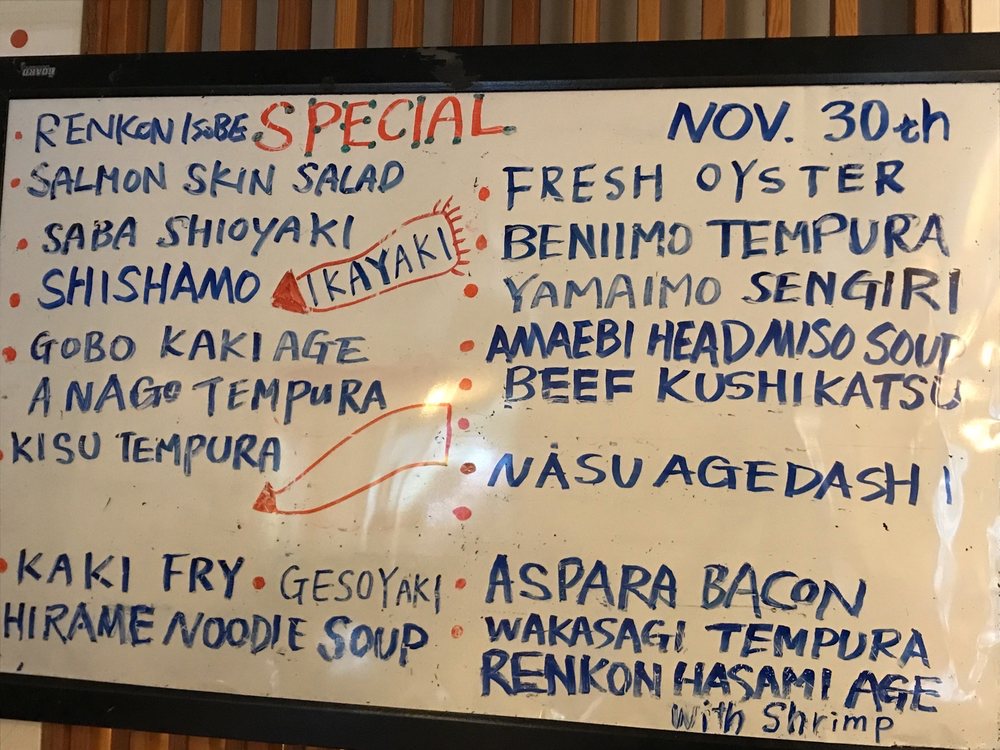 SPECIAL
NOV. 30th
RENKON ISOBE
SALMON SKIN SALAD
SABA SHIOYAKI
SHISHAMO
IKAYAKI
GOBO KAKIAGE
ANAGO TEMPURA
KISU TEMPURA
KAKI FRY
GESOYAKI
HIRAME NOODLE SOUP
FRESH OYSTER
BENIIMO TEMPURA
YAMAIMO SENGIRI
AMAEBI HEAD MISO SOUP
BEEF KUSHIKATSU
NASU AGEDASHI
ASPARA BACON
WAKASAGI TEMPURA
RENKON HASAMI AGE
with Shrimp